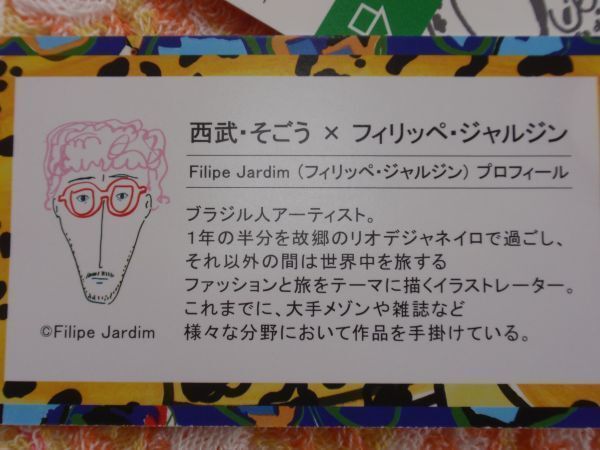 西武・そごう × フィリッペ・ジャルジン
Filipe Jardim (フィリッペ・ジャルジン) プロフィール
ブラジル人アーティスト。
1年の半分を故郷のリオデジャネイロで過ごし、
それ以外の間は世界中を旅する
ファッションと旅をテーマに描くイラストレーター。
これまでに、大手メゾンや雑誌など
様々な分野において作品を手掛けている。
©Filipe Jardim